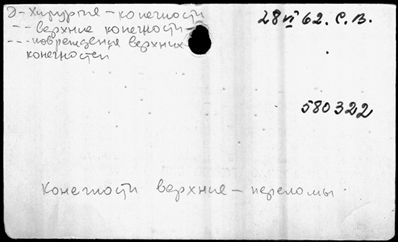 Э - Хирургия - конечности
- - верхние конечности -
- - - повреждения верхних
конечностей
28 VI 62. С. В.
580322
Конечности верхние - переломы